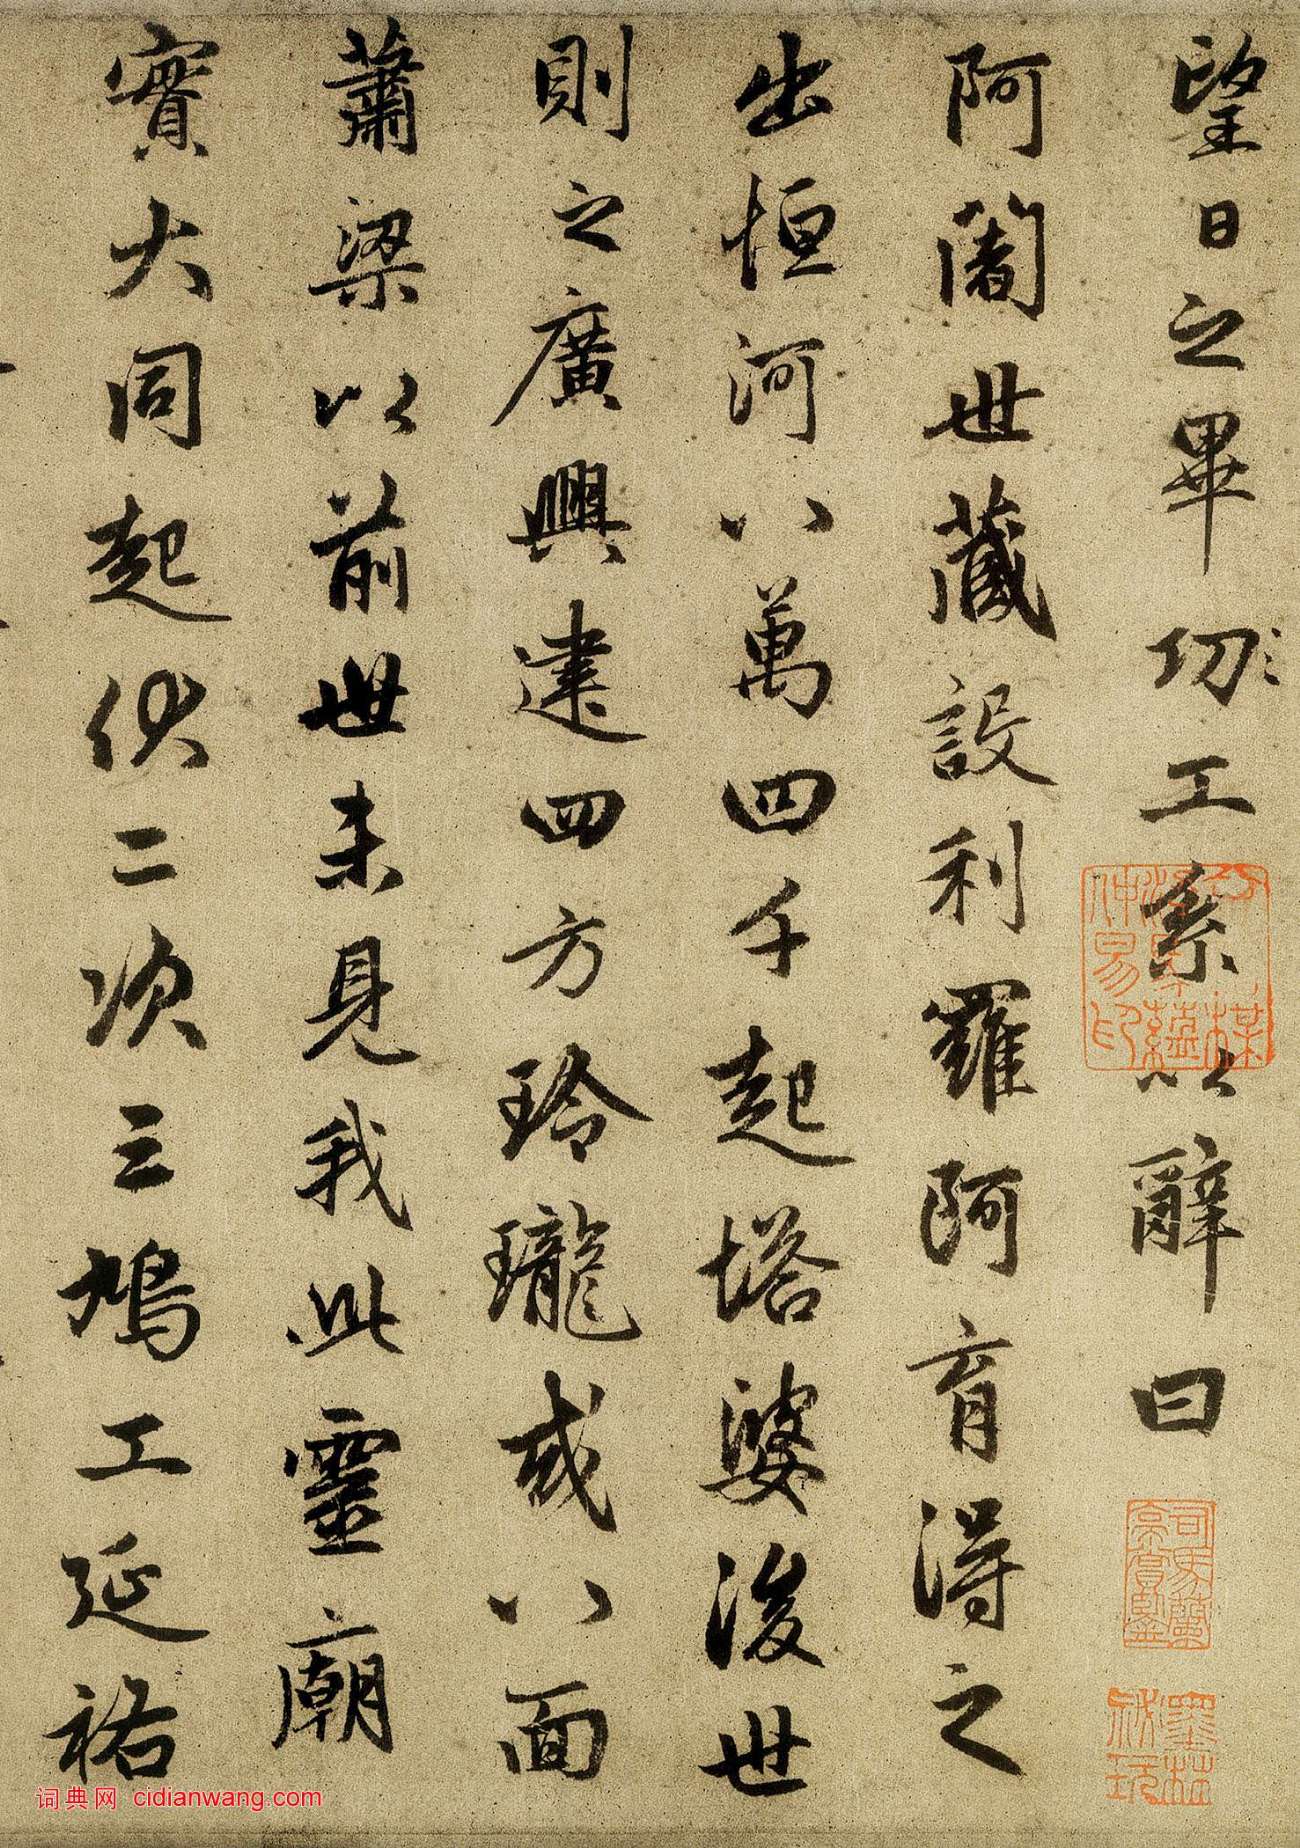 望日之畢功工系以辭曰
阿闍世藏設利羅阿育得之
出恒河八萬四千起塔婆後世
則之廣興建四方玲瓏或八面
蕭梁以前世未見我此靈廟
實大同起伏二次三鳩工延祐
墨林秘玩
词典网 cidianwang.com